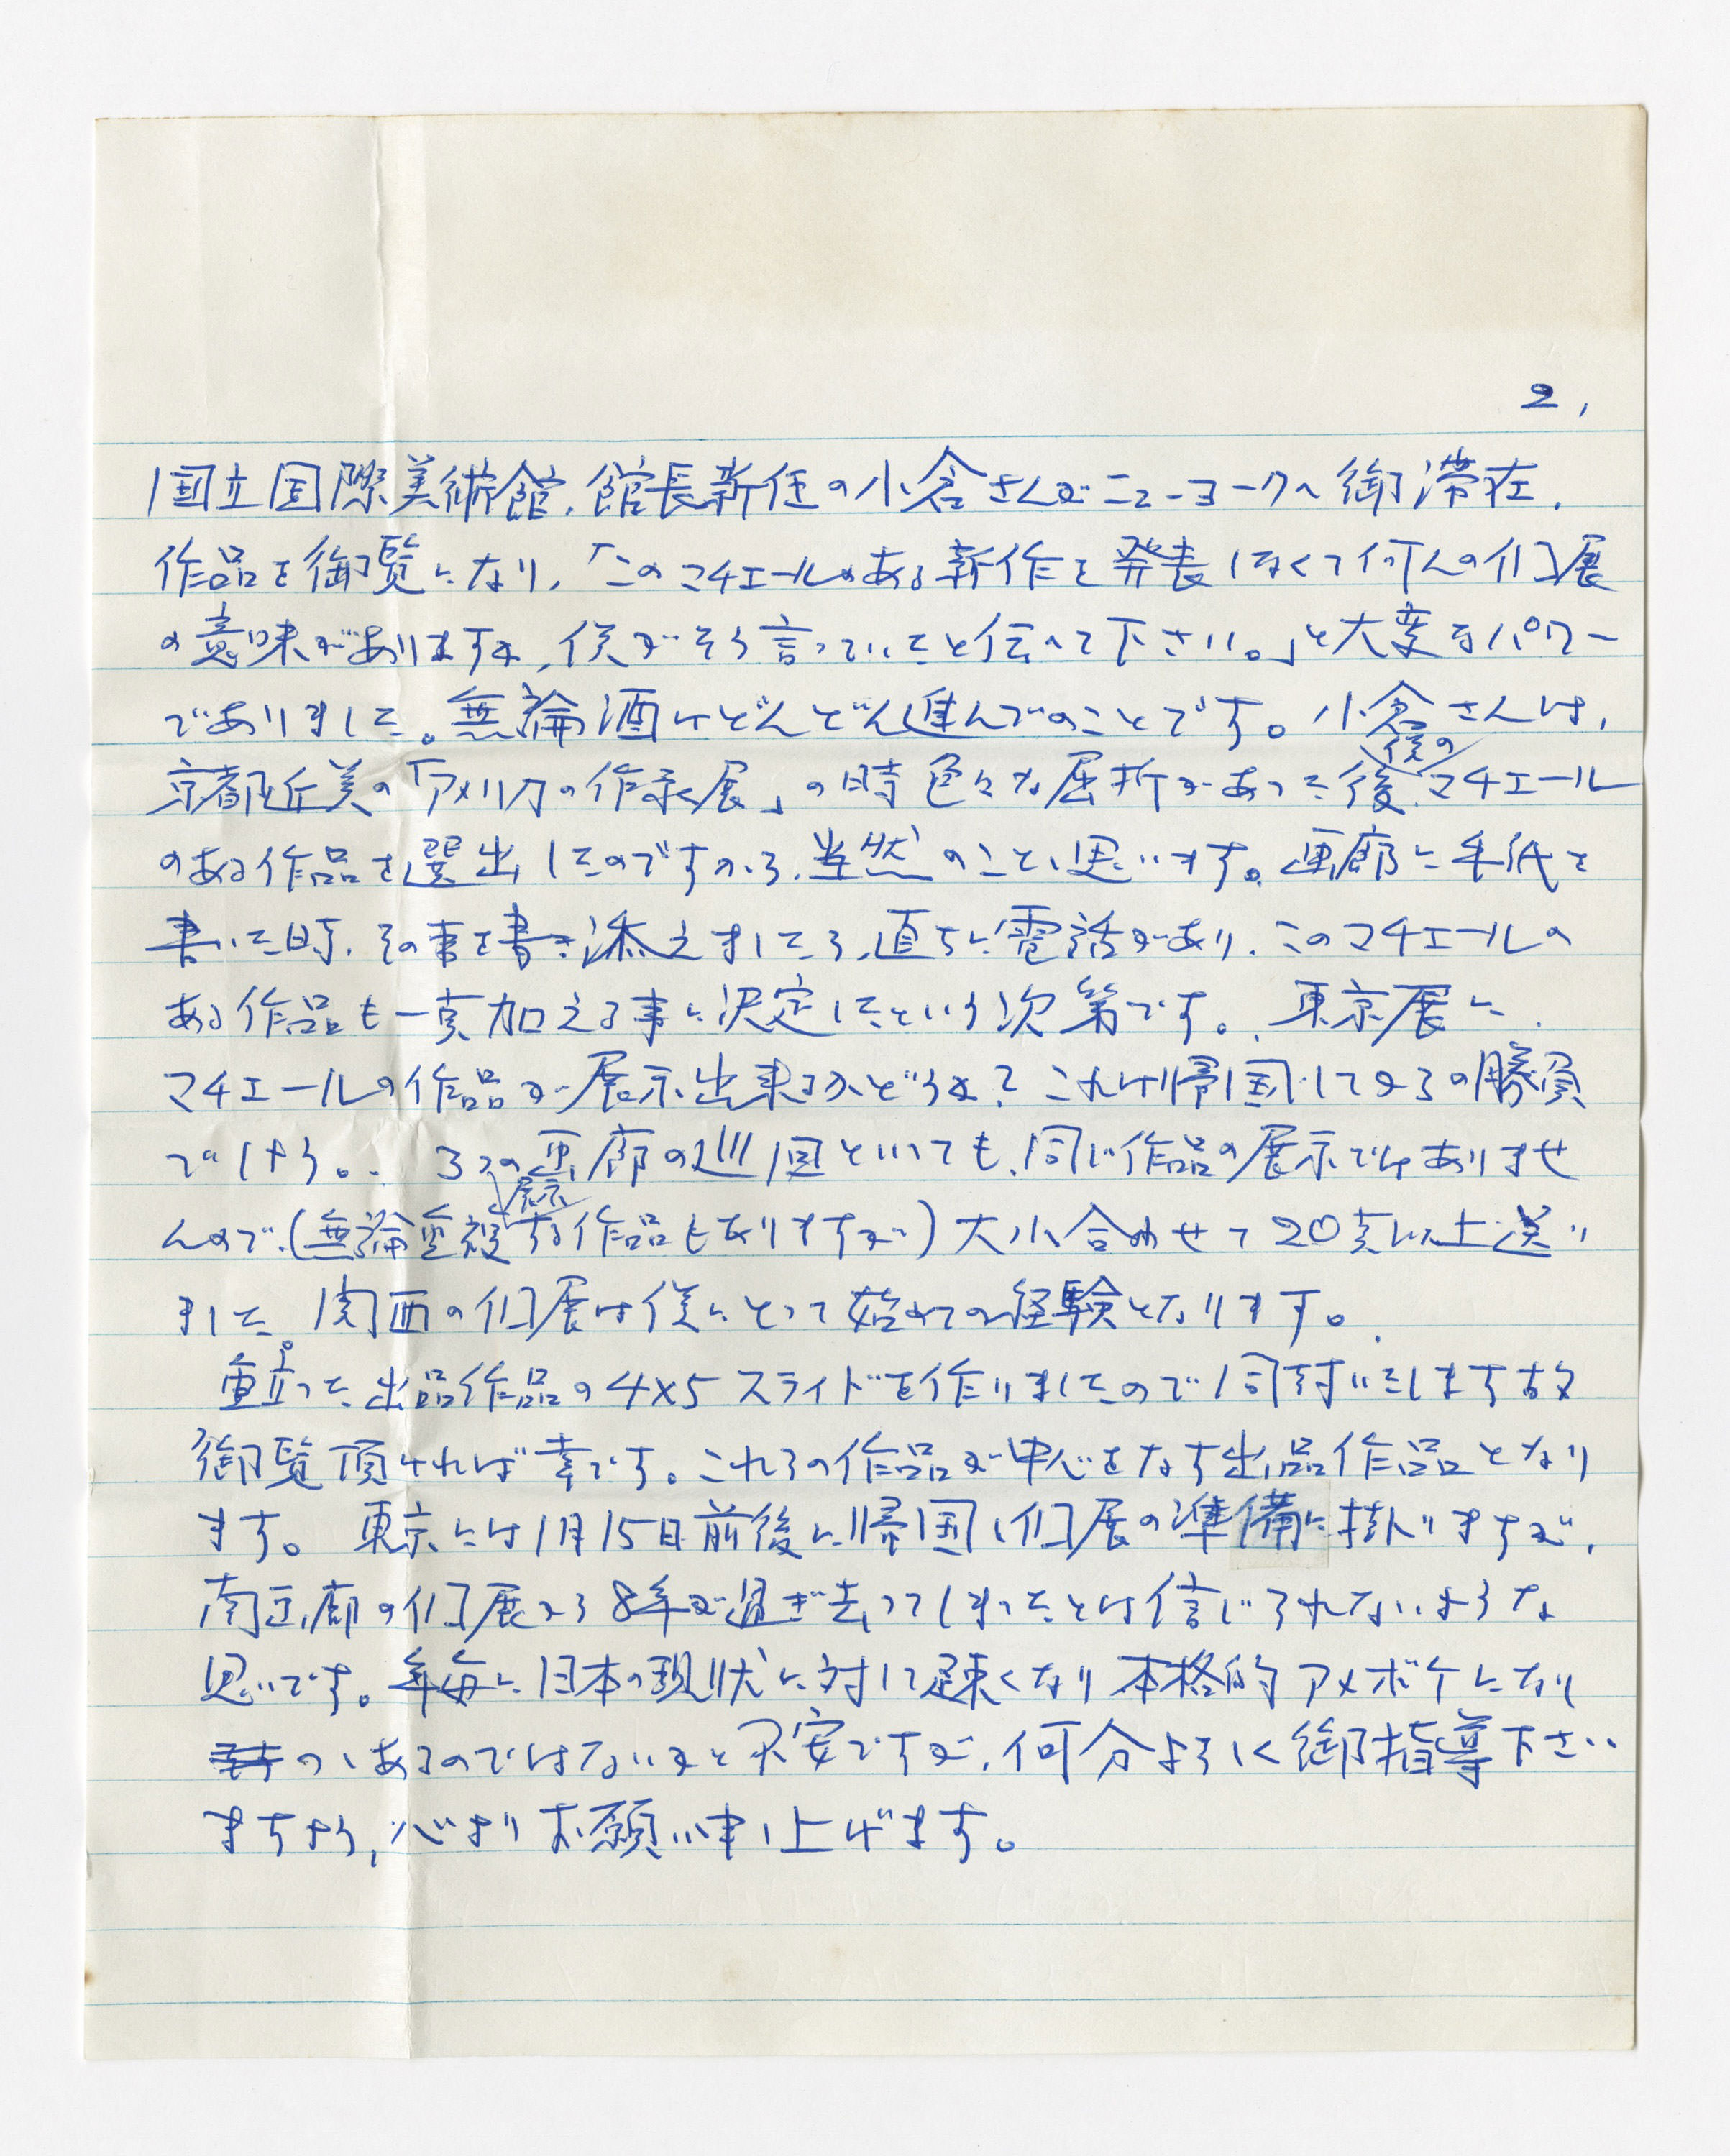 2,
国立国際美術館、館長新任の小倉さんがニューヨークへ御滞在、
作品を御覧になり、「このマチエールのある新作を発表しなくて何んの個展
の意味がありますか、僕がそう言っていたと伝へて下さい。」と大変なパワー
でありました。無論酒はどんどん進んでのことです。小倉さんは、
京都近美の「アメリカの作家展」の時色々な屈折があった後、僕のマチエール
のある作品を選出したのですから、当然のことと思います。画廊に手紙を
書いた時、その事を書き添えましたら、直ちに電話があり、このマチエールの
ある作品も一点加える事に決定したという次第です。東京展に、
マチエールの作品が展示出来るかどうか？これは帰国してからの勝負
でしょう。 3つの画廊の巡回といっても、同じ作品の展示ではありませ
んので、(無論重複展示する作品もありますが)大小合わせて20点以上送り
ました。関西の個展は僕にとって始めての経験となります。
重立った出品作品の4×5スライドを作りましたので同封いたします故
御覧頂ければ幸です。これらの作品が中心をなす出品作品となり
ます。東京には1月15日前後に帰国し個展の準備に掛りますが、
南画廊の個展から8年が過ぎ去ってしまったとは信じられないような
思いです。年毎に日本の現状に対して疎くなり本格的アメボケになり
つゝあるのではないかと不安ですが、何分よろしく御指導下さい
ますよう、心よりお願い申し上げます。